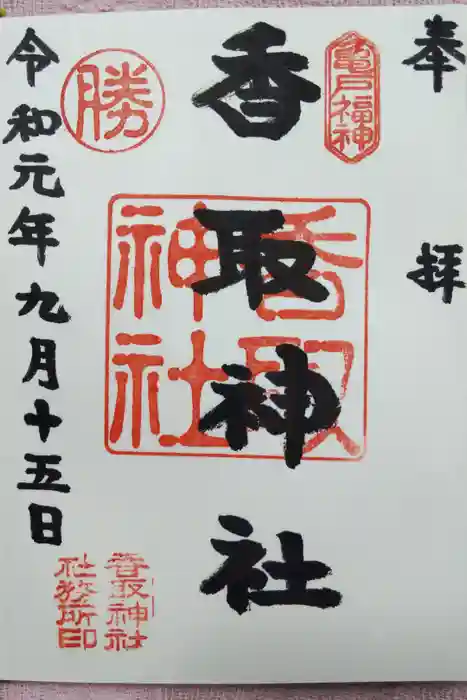 奉拝
亀戸福神
香取神社
香取
神社
勝
令和元年九月十五日
香取神社
社務所印